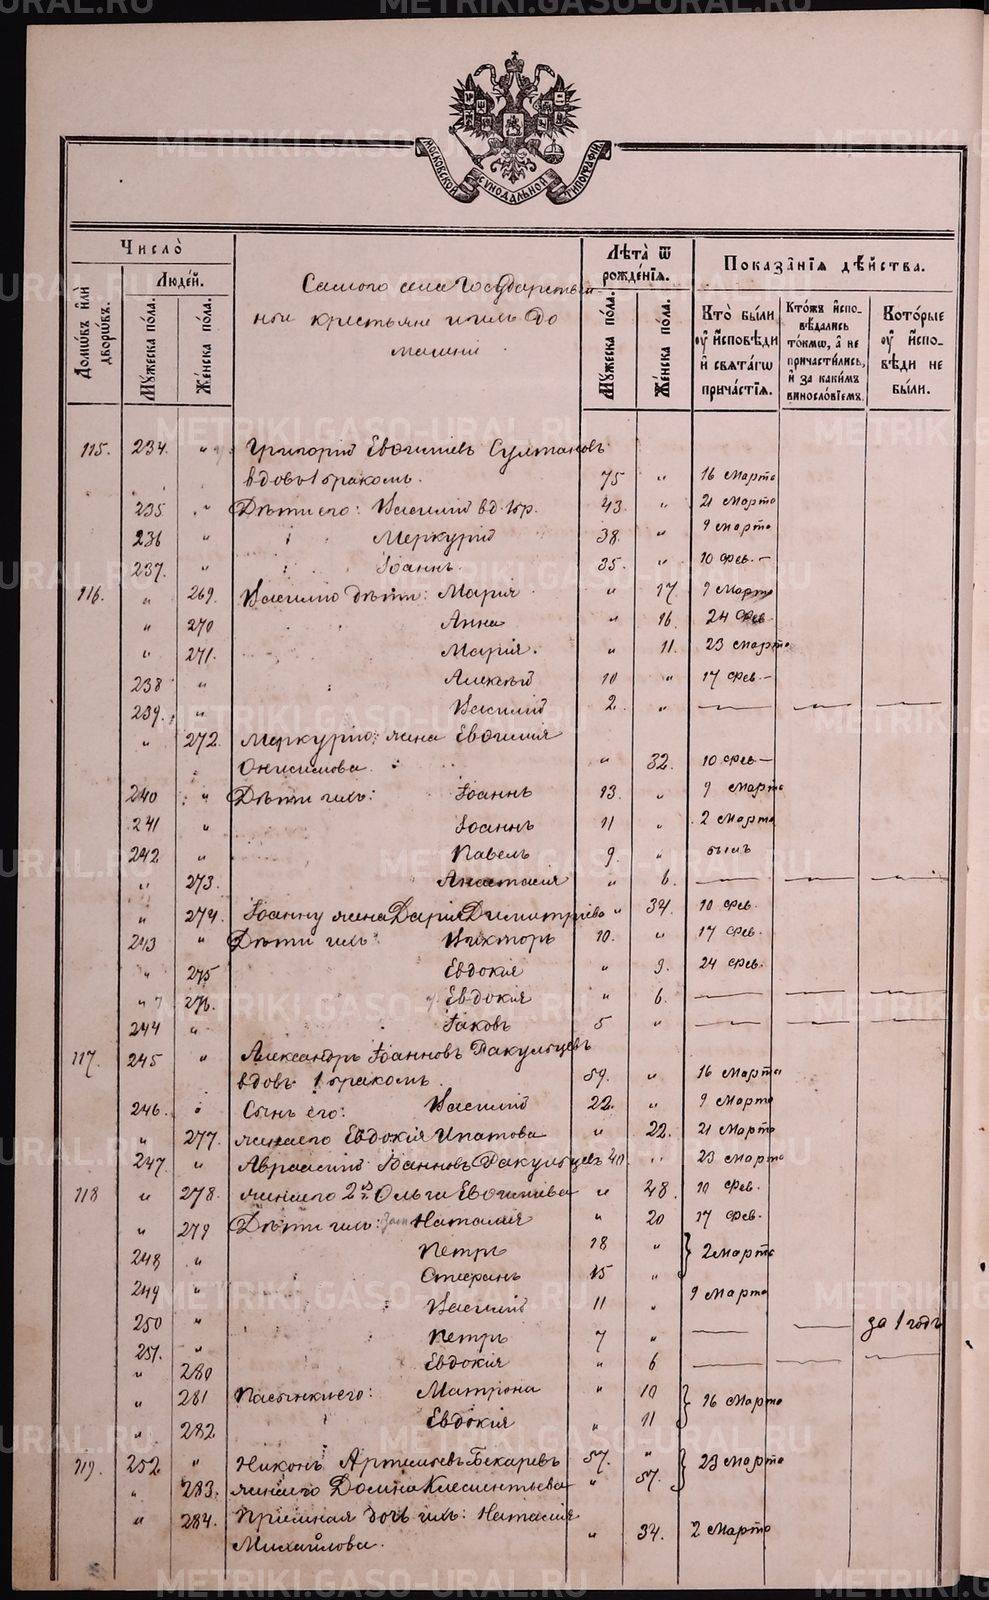 МОСКОВСКОЙ СѴНОДАЛЬНОЙ ТИПОГРАФІИ
Число̀
Домѡ́въ и҆лѝ дворѡ́въ.
Люде́й.
Мꙋ́жеска по́ла.
Же́нска по́ла.
Самого села Государствен-
ные крестьяне и ихъ до
машніе
Лѣта̀ ѿ рожде́нїѧ.
Мꙋ́жеска по́ла.
Же́нска по́ла.
Показа̑нїѧ дѣ́йства.
Кто̀ бы́ли ᲂу҆ и҆́сповѣди и҆ свѧта́гѡ прича́стїѧ.
Кто́жъ и҆спо-вѣ́дались то́кмѡ, а҆ не причасти́лись, и҆ за каки́мъ винослов́їемъ.
Кото́рые ᲂу҆ и҆спо-вѣди не бы́ли.
115. 234. " Григорій Евѳиміевъ Султановъ
вдовъ 1 бракомъ. 75 " 16 Марта
235 " Дѣти его: Василій вд. 1 бр. 43. " 21 Марта
236 " Меркурій 38. " 9 Марта
237. " Іоаннъ. 35. " 10 Фев.–
116. " 269. Василію дѣти: Марія " 17. 9 Марта
" 270 Анна " 16. 24 Фев
" 271. Марія. " 11. 23 Марта
238 " Алексѣй 10 " 17 Фев.–
239. " Василій 2. " — — —
" 272. Меркурію: жена Евѳимія
Онисимова. " 32. 10 Фев–
240 " Дѣти ихъ: Іоаннъ 13. " 9 Марта
241 " Іоаннъ 11 " 2 Марта
242 " Павелъ 9. " былъ
" 273. Анастасія " 6. — — —
" 274. Іоанну жена Дарія Димитріева " 34. 10 Фев.
243 " Дѣти ихъ: Викторъ 10. " 17 Фев.
" 275 Евдокія " 9. 24 Фев.
" 276. Евдокія " 6. — — —
244 " Іаковъ 5 " — — —
117. 245 " Александръ Іоанновъ Ракульцевъ
вдовъ 1 бракомъ. 59. " 16 Марта
246. " Сынъ его: Василій 22. " 9 Марта
" 277. жена его Евдокія Ипатова " 22. 21 Марта
247. " Авраамій Іоанновъ Ракульцевъ 40. " 23 Марта
118 " 278. жена его 2 Ольга Евѳиміева " 48. 10 Фев.
" 279 Дѣти ихъ: Наталія " 20 17 Фев.
248 " Петръ 18 " } 2 Марта
249 " Стефанъ 15 "
250 " Василій 11 " 9 Марта
251. " Петръ 7 " — — за 1 годъ
" 280 Евдокія " 6 — — —
" 281 Пасынки его: Матрона " 10 } 16 Марта
" 282 Евдокія " 11
119. 252 " Никонъ Артемьевъ Бекаревъ 57. " } 23 Марта
" 283. жена его Домна Клементьева " 57.
" 284. Приемная дочь ихъ: Наталія
Михайлова. " 34. 2 Марта
METRIKI.GASO-URAL.RU